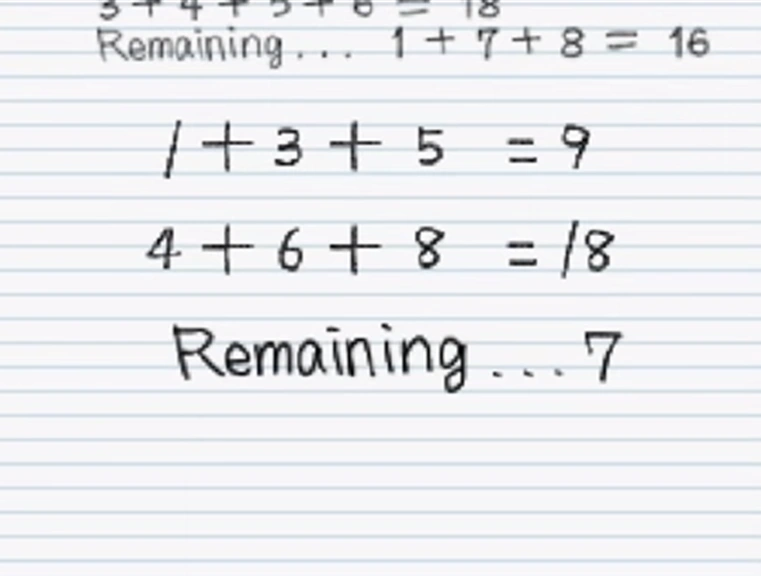 3 + 4 + 5 + 6 = 18
Remaining... 1 + 7 + 8 = 16
1 + 3 + 5 = 9
4 + 6 + 8 = 18
Remaining ... 7